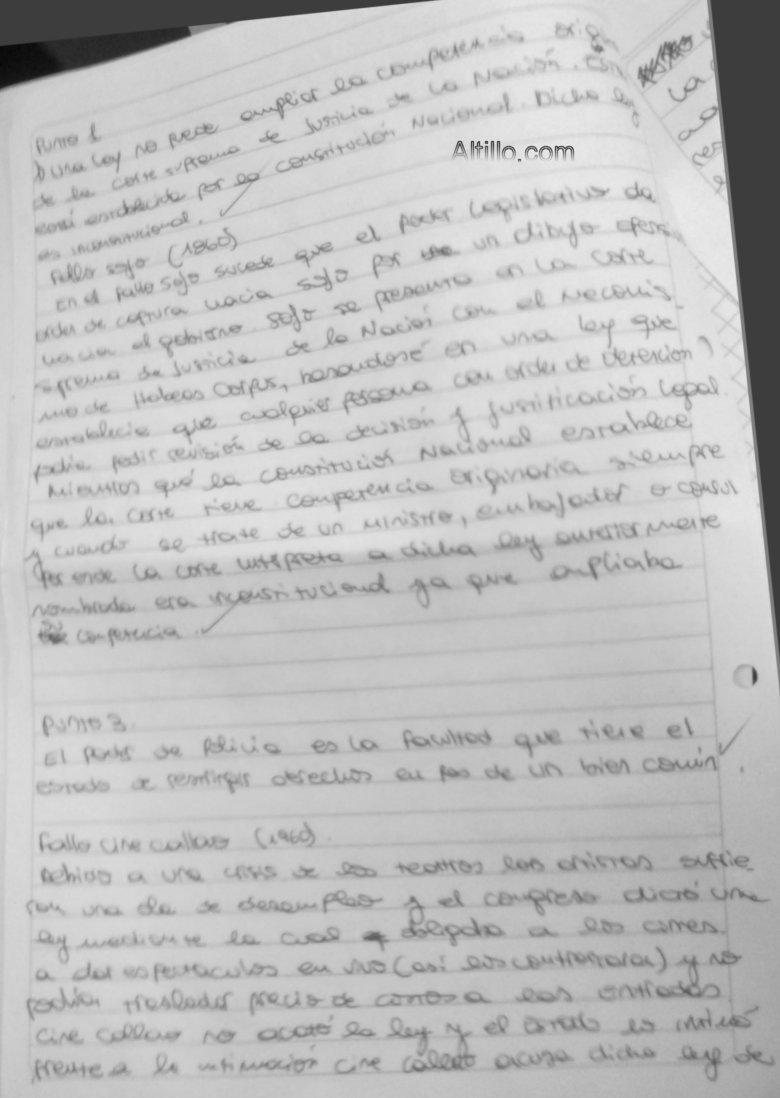 Punto 1
1) Una Ley no puede ampliar la competencia origin
de la corte suprema de Justicia de la Nación. Esta
está establecida por la constitución Nacional. Dicha ley
es inconstitucional.
Altillo.com
Fallo Sojo (1860)
En el fallo Sojo sucede que el poder Legislativo da
orden de captura hacia Sojo por un dibujo ofensi
hacia el gobierno. Sojo se presenta en la corte
suprema de Justicia de la Nación con el mecanis
mo de Habeas Corpus, basandose en una ley que
establecia que cualquier persona con orden de detención
podia pedir revisión de la decisión y justificación legal.
Mientras que la constitución Nacional establece
que la corte tiene competencia originaria siempre
y cuando se trate de un ministro, embajador o consul
Por ende la corte interpreta a dicha ley anteriormente
nombrada era inconstitucional ya que ampliaba
su competencia.
Punto 3.
El Poder de Policia es la facultad que tiene el
estado de restringir derechos en pos de un bien común.
Fallo cine callao (1960).
Debido a una crisis de los teatros los artistas sufrie
ron una ola de desempleo y el congreso dictó una
ley mediante la cual obligaba a los cines
a dar espectaculos en vivo (asi los contrataran) y no
podian trasladar precio de costos a las entradas
cine callao no acató la ley y el estado lo intimó
frente a la intimación cine callao acusa dicha ley de